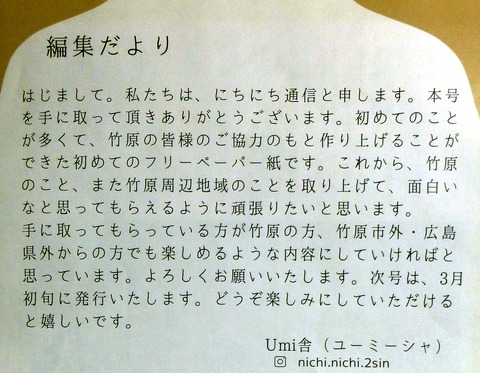 編集だより
はじまして。私たちは、にちにち通信と申します。本号
を手に取って頂きありがとうございます。初めてのこと
が多くて、竹原の皆様のご協力のもと作り上げることが
できた初めてのフリーペーパー紙です。これから、竹原
のこと、また竹原周辺地域のことを取り上げて、面白い
なと思ってもらえるように頑張りたいと思います。
手に取ってもらっている方が竹原の方、竹原市外・広島
県外からの方でも楽しめるような内容にしていければと
思っています。よろしくお願いいたします。次号は、3月
初旬に発行いたします。どうぞ楽しみにしていただける
と嬉しいです。
Umi舎（ユーミーシャ）
nichi.nichi.2sin